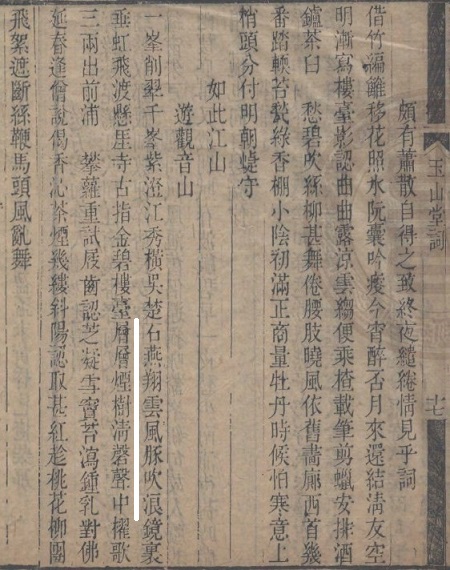 玉山堂詞
十七
頗有蕭散自得之致終夜繾綣情見乎詞
借竹編籬移花照水阮囊吟瘦今宵醉否月來還結清友空
明漸寫樓臺影認曲曲露涼雲縐便乘楂載筆剪蠟安排酒
鑪茶臼　愁碧吹絲柳甚舞倦腰肢曉風依舊畫廊西首幾
番踏輭苔甃綠香棚小陰初滿正商量牡丹時候怕寒意上
梢頭分付明朝蜨守
如此江山
遊觀音山
一峯削翠千峯紫澄江秀橫吳楚石燕翔雲風豚吹浪鏡裏
垂虹飛渡懸厓寺古指金碧樓臺層層煙樹清磬聲中櫂歌
三兩出前浦　攀蘿重試屐齒認芝凝雪竇苔瀉鍾乳對佛
延春逢僧說偈香沁茶煙幾縷斜陽認取甚紅趁桃花柳團
飛絮遮斷絲鞭馬頭風亂舞